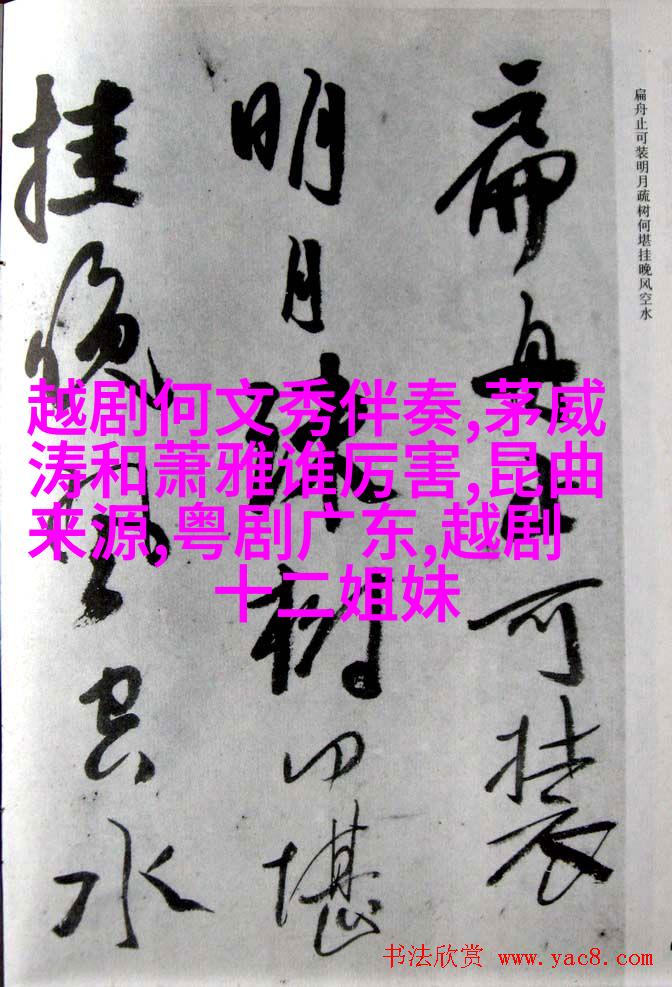 扁舟止可装
明月疏树何堪
挂晚风空水
扁舟止可装明月疏树何堪挂晚风空水
越剧何文秀伴奏,茅威
涛和萧雅谁厉害,昆曲
来源,粤剧广东,越剧
十二姐妹
书法欣赏 www.yac8.com